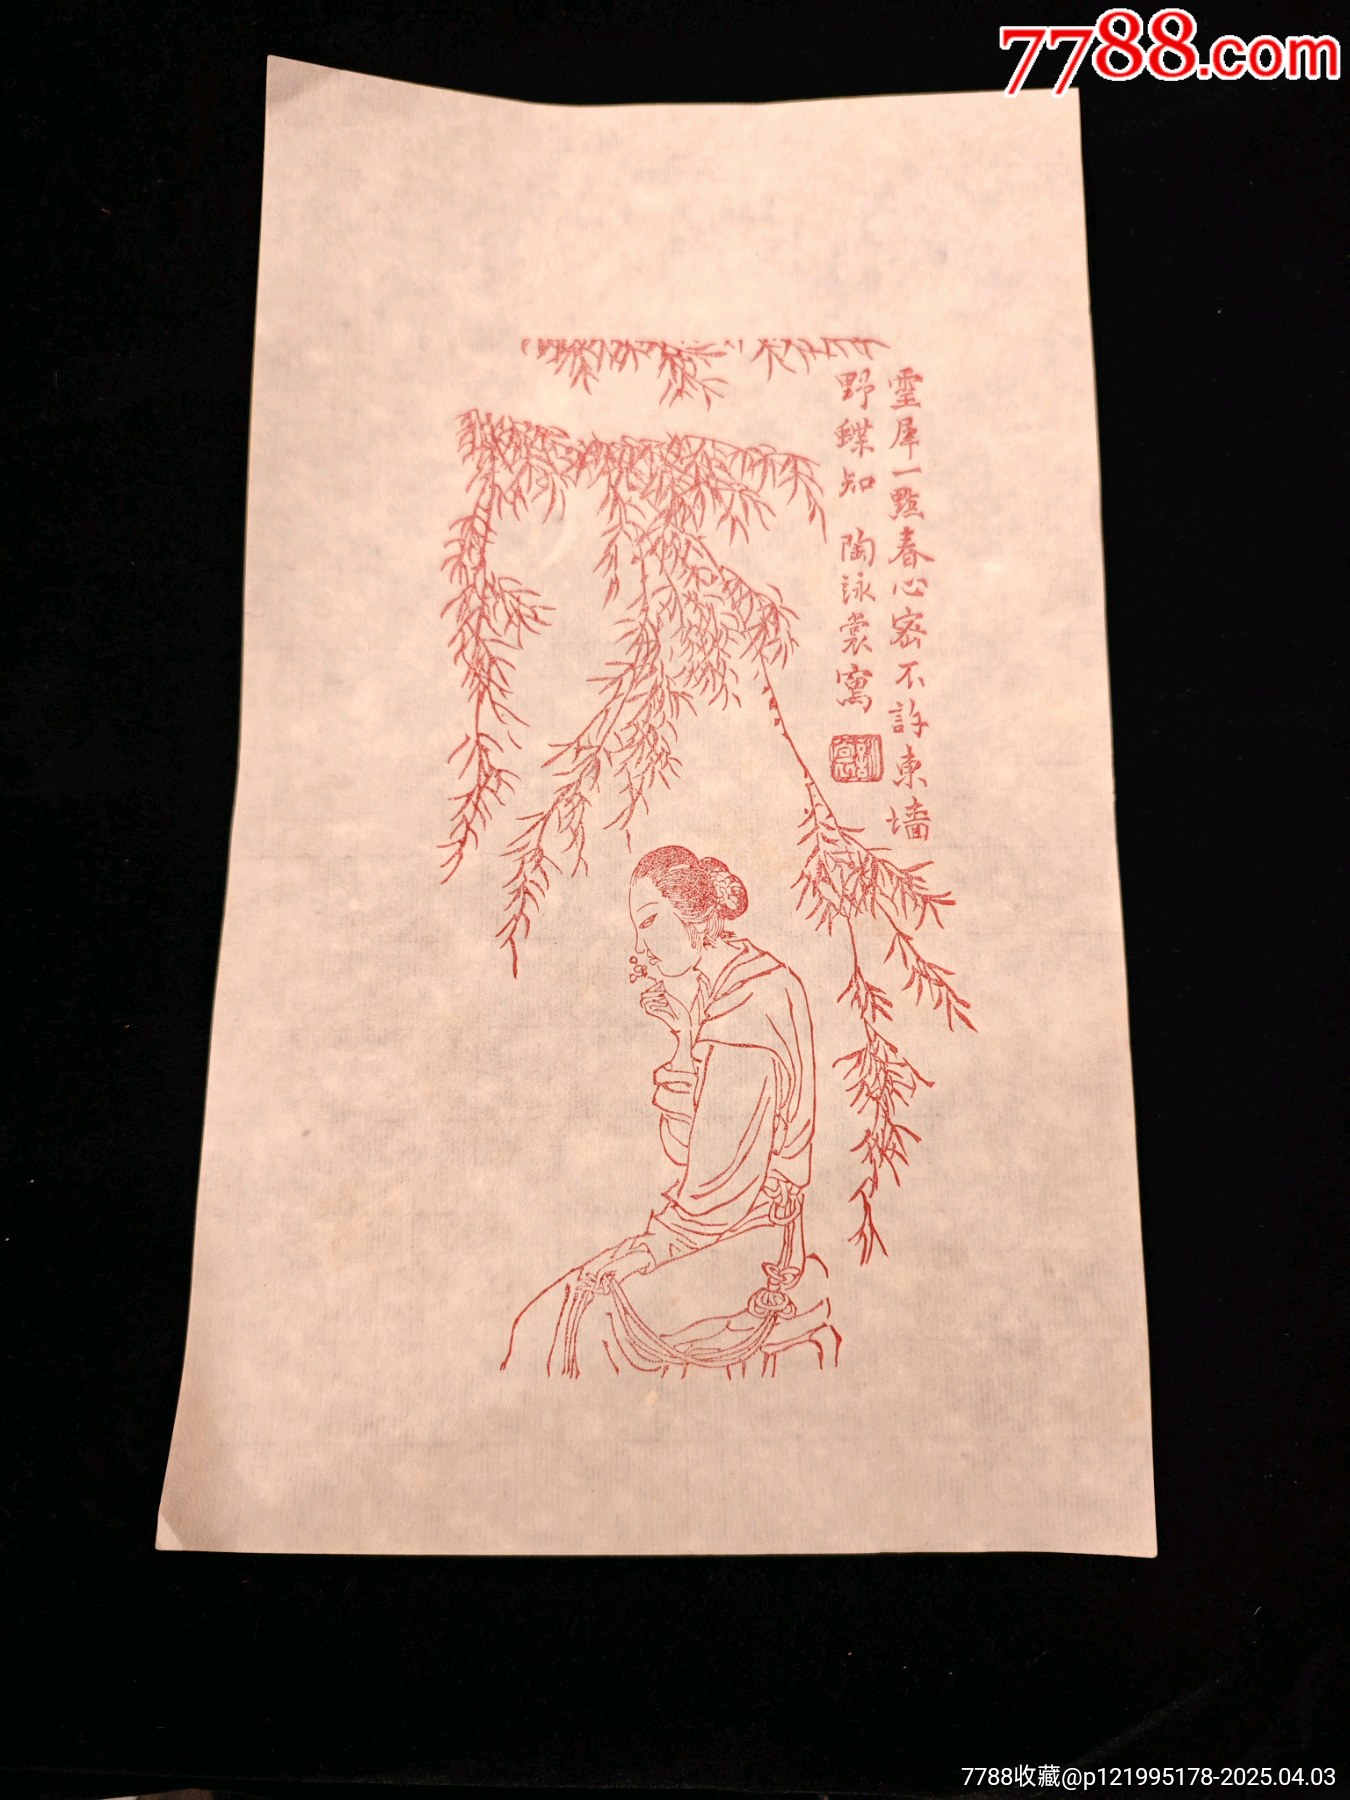 7788.com
靈犀一點春心密不許東墻
野蝶知 陶詠裳寫
7788收藏@p121995178-2025.04.03